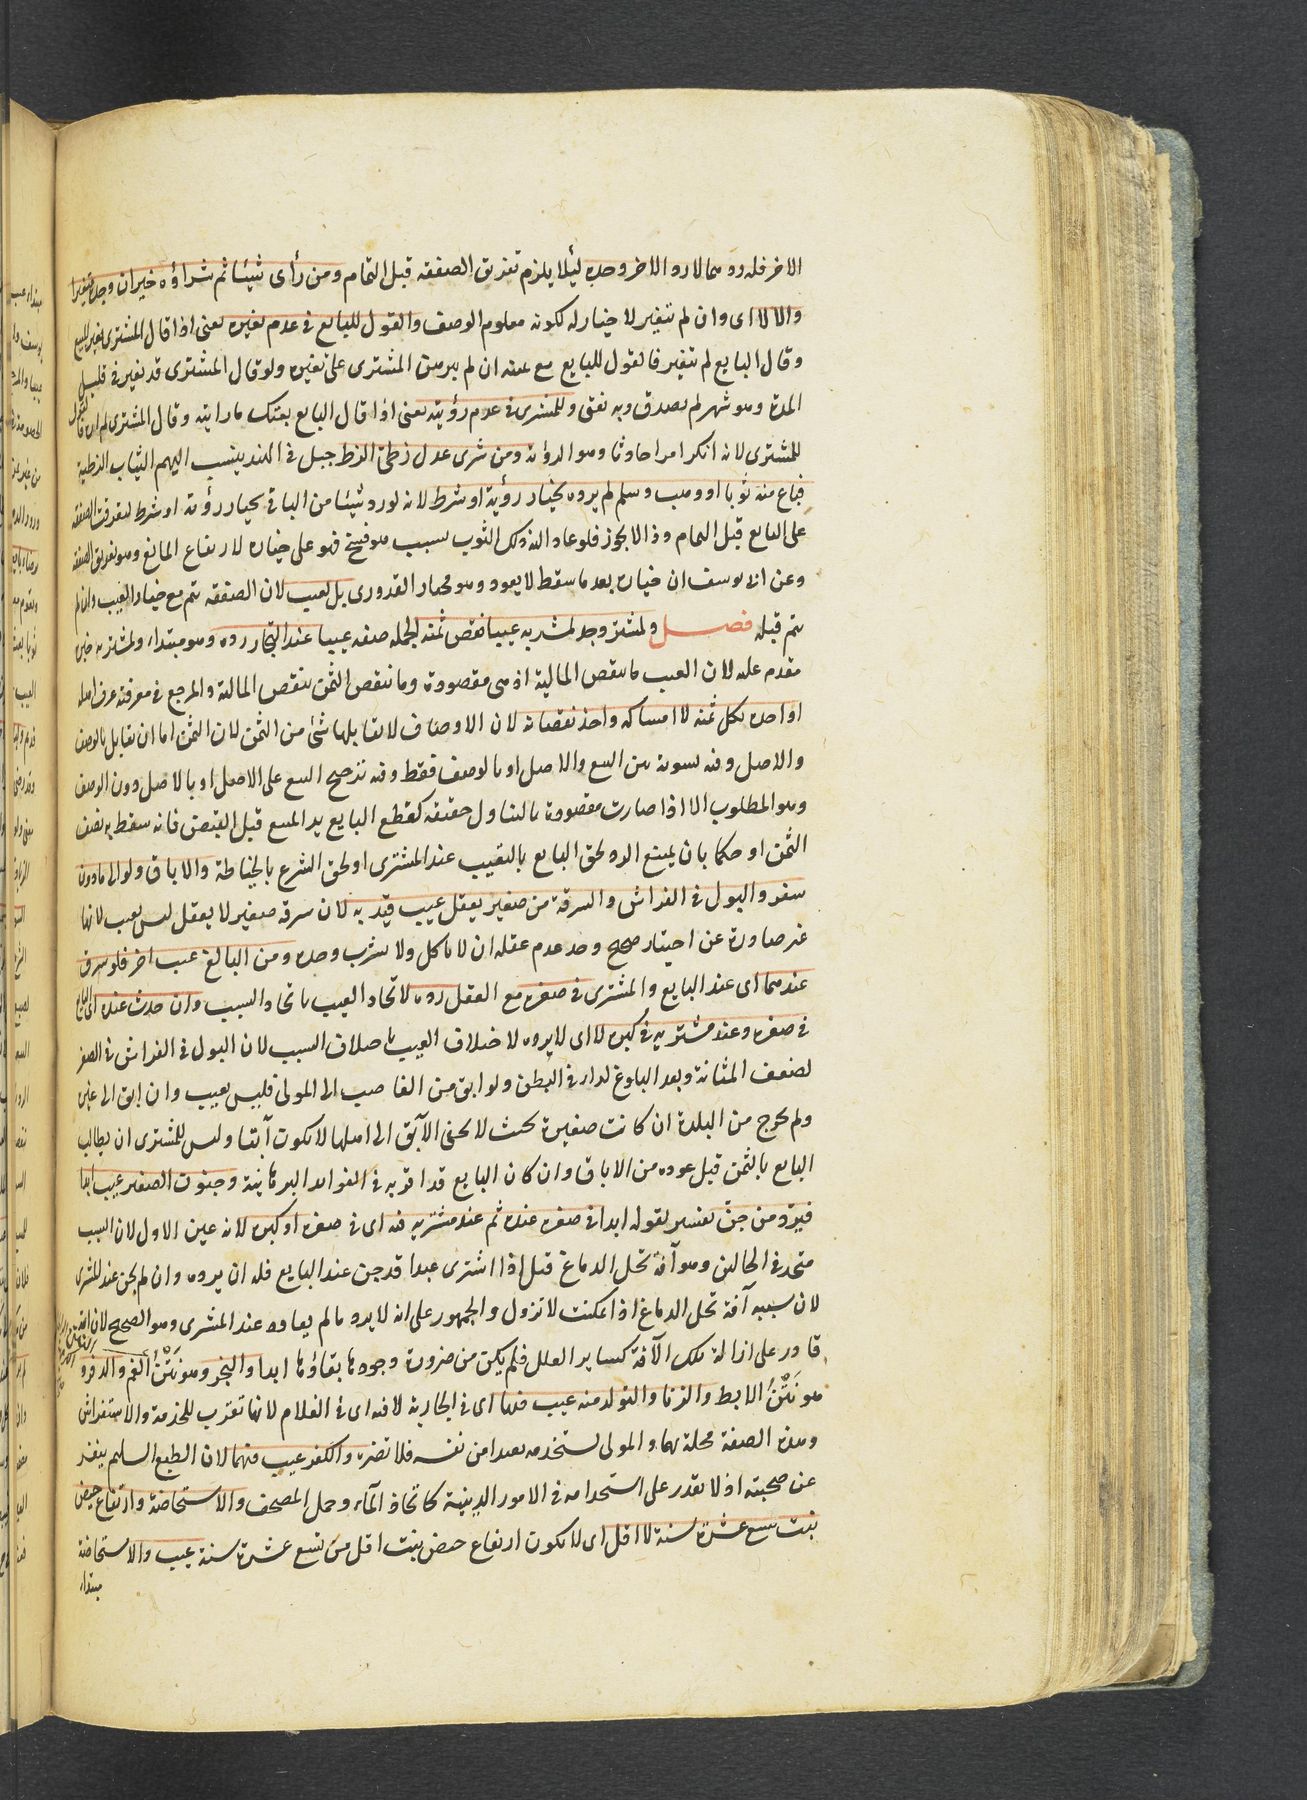 الاخر فله ردهما لا رد الاخر وحده لئلا يلزم تفريق الصفقة قبل التمام ومن رأى شيئا ثم شراؤه خير ان وجده متغيرا
والا لا اى وان لم يتغير لا خيار له لكونه معلوم الوصف والقول للبايع فى عدم تغيره يعنى اذا قال المشترى تغير المبيع
وقال البايع لم يتغير فالقول للبايع مع يمينه ان لم يبرهن المشترى على تغيره ولو قال المشترى قد تغير فى قليل
المدة وهو شهر لم يصدق وبه نفتى وللمشترى فى عدم رؤيته يعنى اذا قال البايع بعتك ما رايته وقال المشترى لم اره فالقول
للمشترى لانه انكر امرا حادثا وهو الرؤية ومن شرى عدل زطى الزط جيل فى الهند ينسب اليهم الثياب الزطية
فباع منه ثوبا او وهب وسلم لم يرده بخيار رؤية او شرط لانه لو رد شيئا من الباقى بخيار رؤية او شرط لتفرقت الصفقة
على البايع قبل التمام وذا لا يجوز فلو عاد الى ذلك الثوب بسبب هو فسخ فهو على خياره لارتفاع المانع وهو تفريق الصفقة
وعن ابى يوسف ان خياره بعد ما سقط لا يعود وهو مختار القدورى بل لعيب لان الصفقة تتم مع خيار العيب وان لم
تتم قبله فصل ولمشتر وجد بمشريه عيبا نقص ثمنه الجملة صفة عيبا عند التجار رده وهو مبتداء ولمشتر به خبره
مقدم عليه لان العيب ما ينقص المالية اذ هى مقصودة وما ينقص الثمن ينقص المالية والمرجع فى معرفته عرف اهله
او اخذه بكل ثمنه لا امساكه واخذ نقصانه لان الاوصاف لا تقابلها شئ من الثمن لان الثمن اما ان تقابل بالوصف
والاصل وفيه تسوية بين التبع والاصل او بالوصف فقط وفيه ترجيح التبع على الاصل او بالاصل دون الوصف
وهو المطلوب الا اذا صارت مقصودة بالتناول حقيقة كقطع البايع يد المبيع قبل القبض فانه سقط به نصف
الثمن او حكما بان يمتنع الرد لحق البايع بالتعيب عند المشترى او لحق الشرع بالخياطة والاباق ولو الى ما دون
سفر والبول فى الفراش والسرقة من صغير يعقل عيب قيد به لان سرقة صغير لا يعقل ليس بعيب لانها
غير صادرة عن اختيار صحيح وحد عدم عقله ان لا ياكل ولا يشرب وحده ومن البالغ عيب اخر فلو سرق
عندهما اى عند البايع والمشترى فى صغره مع العقل رده لاتحاد العيب باتحاد السبب وان حدث عنده اى البايع
فى صغره وعند مشتريه فى كبره لا اى لا يرده لاختلاف العيب باختلاف السبب لان البول فى الفراش فى الصغر
لضعف المثانة وبعد البلوغ لداء فى البطن ولو ابق من الغاصب الى المولى فليس بعيب وان ابق الى غيره
ولم يخرج من البلدة ان كانت صغيرة بحيث لا يخفى الآبق الى اهلها لا يكون آبقا وليس للمشترى ان يطالب
البايع بالثمن قبل عوده من الاباق وان كان البايع قد اقر به فى الفوائد البرهانية وجنون الصغير عيب ابدا
فيرد من جن تفسير لقوله ابدا فى صغره عنده ثم عند مشتريه فيه اى فى صغره او كبره لانه عين الاول لان السبب
متحد فى الحالين وهو آفة تحل الدماغ قيل اذا اشترى عبدا قد جن عند البايع فله ان يرده وان لم يجن عند المشترى
لان سببه آفة تحل الدماغ اذا تمكنت لا تزول والجمهور على انه لا يرد ما لم يعاوده عند المشترى وهو الصحيح لان الله
قادر على ازالة تلك الآفة كساير العلل فلم يكن من ضرورة وجودها بقاؤها ابدا والبخر وهو نتن الفم والدفر وهو
هو نتن الابط والزنا والتولد منه عيب فيها اى فى الجارية لا فيه اى فى الغلام لانها تقرب للخدمة والاستفراش
وهذه الصفة مخلة بهما والمولى يستخدمه بعيدا من نفسه فلا تضره والكفر عيب فيهما لان الطبع السليم ينفر
عن صحبته اذ لا يقدر على استخدامه فى الامور الدينية كاتخاذ الماء وحمل المصحف والاستحاضة وارتفاع حيض
بنت سبع عشرة سنة لا اقل اى لا يكون ارتفاع حيض بنت اقل من سبع عشرة سنة عيب والاستحاضة
مبتداء